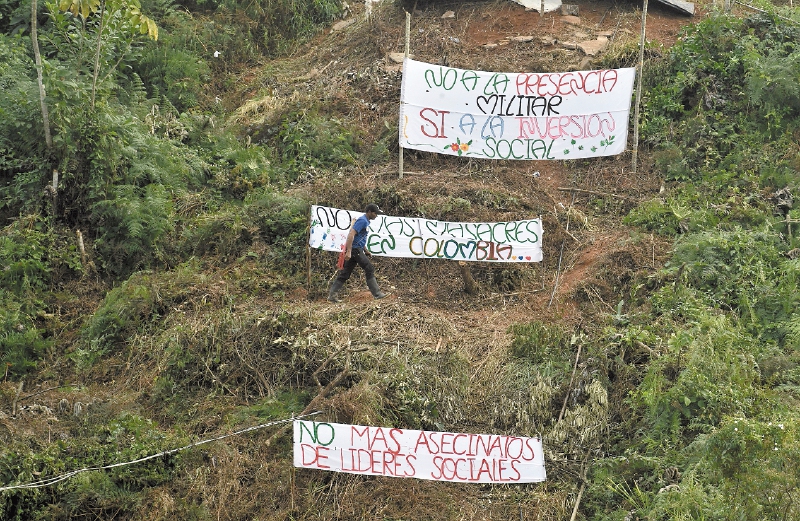 NO A LA PRESENCIA
MILITAR
SI A LA INVERSION
SOCIAL
NO MAS MASACRES
EN COLOMBIA
NO MAS ASECINATOS
DE LIDERES SOCIALES